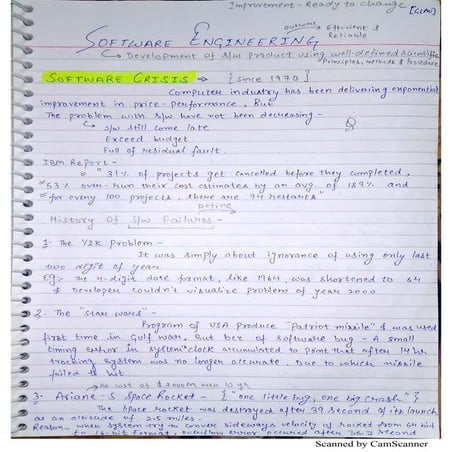 Improvement - Ready to change
[GLAU]
outcome → Efficient & Reliable
SOFTWARE ENGINEERING
Development of s/w product using well-defined scientific
Principles, methods & Procedure
SOFTWARE CRISIS → {Since 1970}
Computer industry has been delivering exponential
improvement in price-performance, But
The problem with s/w have not been decreasing -
s/w still come late.
Exceed budget
Full of residual fault.
IBM REPORT -
"31% of projects get cancelled before they completed,
53% over-run their cost estimates by an avg. of 189% and
for every 100 projects, there are 94 restarts"
Define
History Of S/w Failures -
1. The Y2K Problem -
It was simply about ignorance of using only last
two digit of year
Eg:- The 4-digit date format, like 1964, was shortened to 64
& Developer couldn't visualize problem of year 2000
2. The "Star Wars" -
Program of USA produce "Patriot missile" & was used
first time in Gulf war. But bcz of software bug - A small
timing error in system's clock accumulated to point that after 14 hr
tracking system was no longer accurate. Due to which missile
failed to hit.
at cost of $ over 10 yr
3. Ariane-5 Space Rocket - {"one little bug, one big crash"}
The space rocket was destroyed after 39 second of its launch
at an altitude of 2.5 miles.
Reason - when system try to conver sideways velocity of rocket from 64 bit
to 16-bit format, overflow error occured after 36.7 second
Scanned by CamScanner